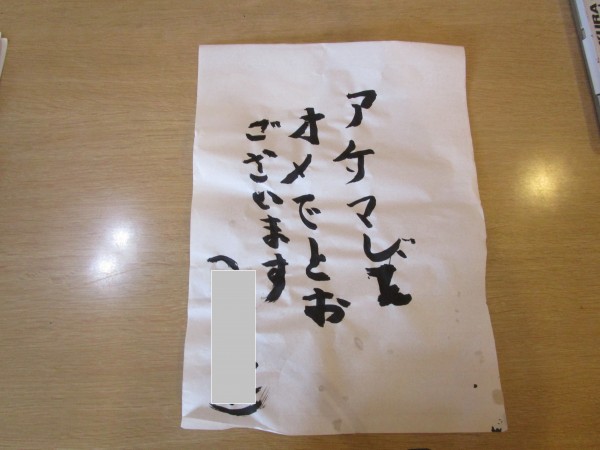 アケマして
オメでとお
ございます